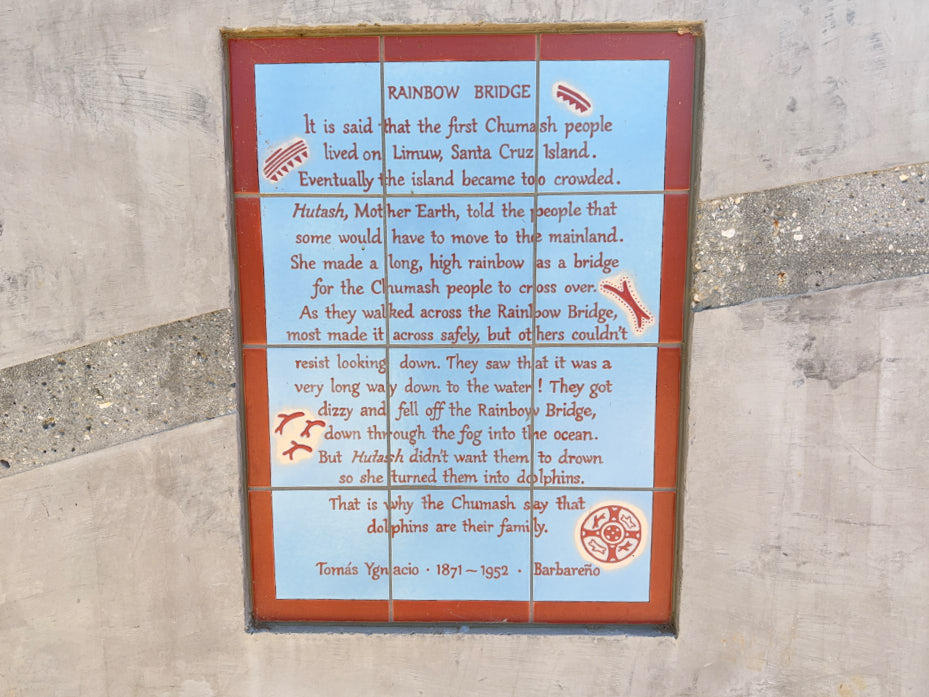 RAINBOW BRIDGE
It is said that the first Chumash people
lived on Limuw, Santa Cruz Island.
Eventually the island became too crowded.
Hutash, Mother Earth, told the people that
some would have to move to the mainland.
She made a long, high rainbow as a bridge
for the Chumash people to cross over.
As they walked across the Rainbow Bridge,
most made it across safely, but others couldn't
resist looking down. They saw that it was a
very long way down to the water! They got
dizzy and fell off the Rainbow Bridge,
down through the fog into the ocean.
But Hutash didn't want them to drown
so she turned them into dolphins.
That is why the Chumash say that
dolphins are their family.
Tomás Ygnacio · 1871~1952 · Barbareño